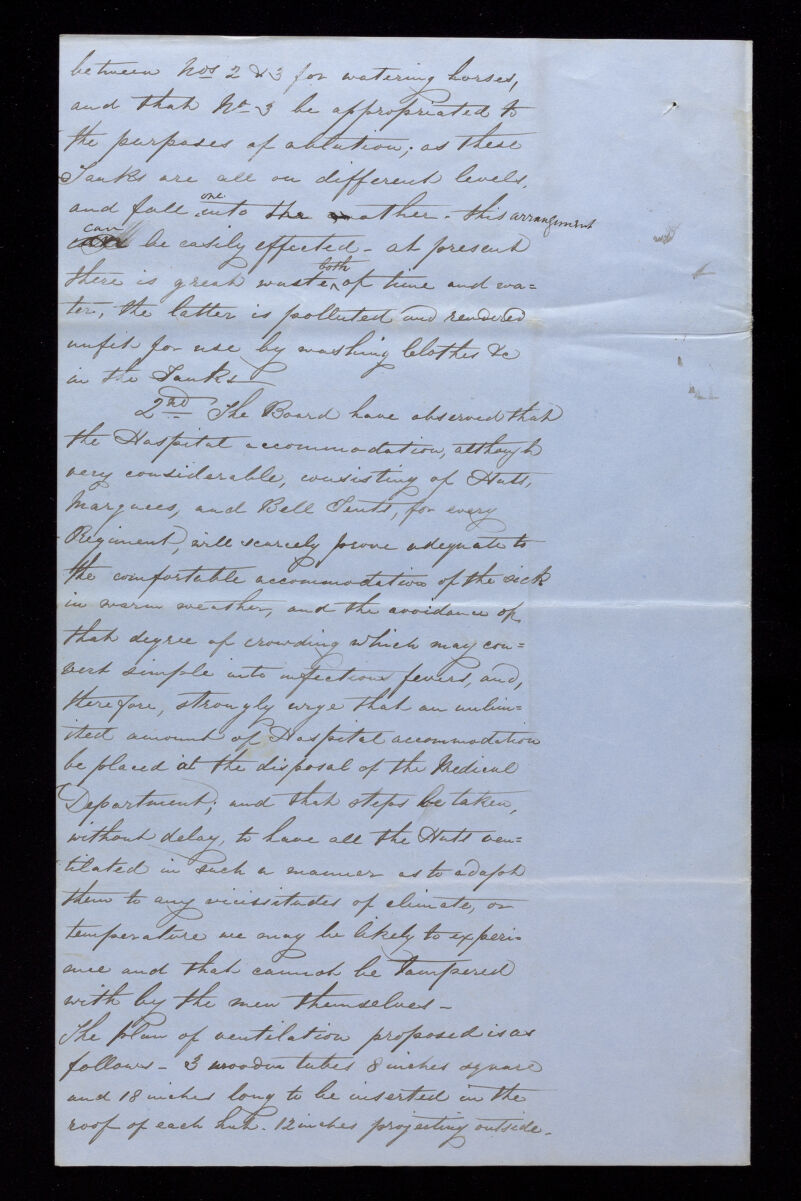 between Nos 2 & 3 for watering horses,
and that No 3 be appropriated to
the purposes of ablution; as these
Tanks are all on different levels,
and fall one into the other - this arrangement
can be easily effected - at present
there is great waste both of time and wa=
ter, the latter is polluted and rendered
unfit for use by washing Clothes &c
in the Tanks -
2nd The Board have observed that
the Hospital accommodation, although
very considerable, consisting of Huts,
Marquees, and Bell Tents, for every
Regiment, will scarcely prove adequate to
the comfortable accommodation of the sick
in warm weather, and the avoidance of
that degree of crowding which may con=
vert simple into infectious fevers, and,
therefore, strongly urge that an unlim=
ited amount of Hospital accommodation
be placed at the disposal of the Medical
Department; and that steps be taken,
without delay, to have all the Huts ven=
tilated in such a manner as to adapt
them to any vicissitudes of climate, or
temperature we may be likely to experi=
ence and that cannot be tampered
with by the men themselves -
The plan of ventilation proposed is as
follows - 3 wooden tubes 8 inches square
and 18 inches long to be inserted in the
roof of each hut - 12 inches projecting outside -